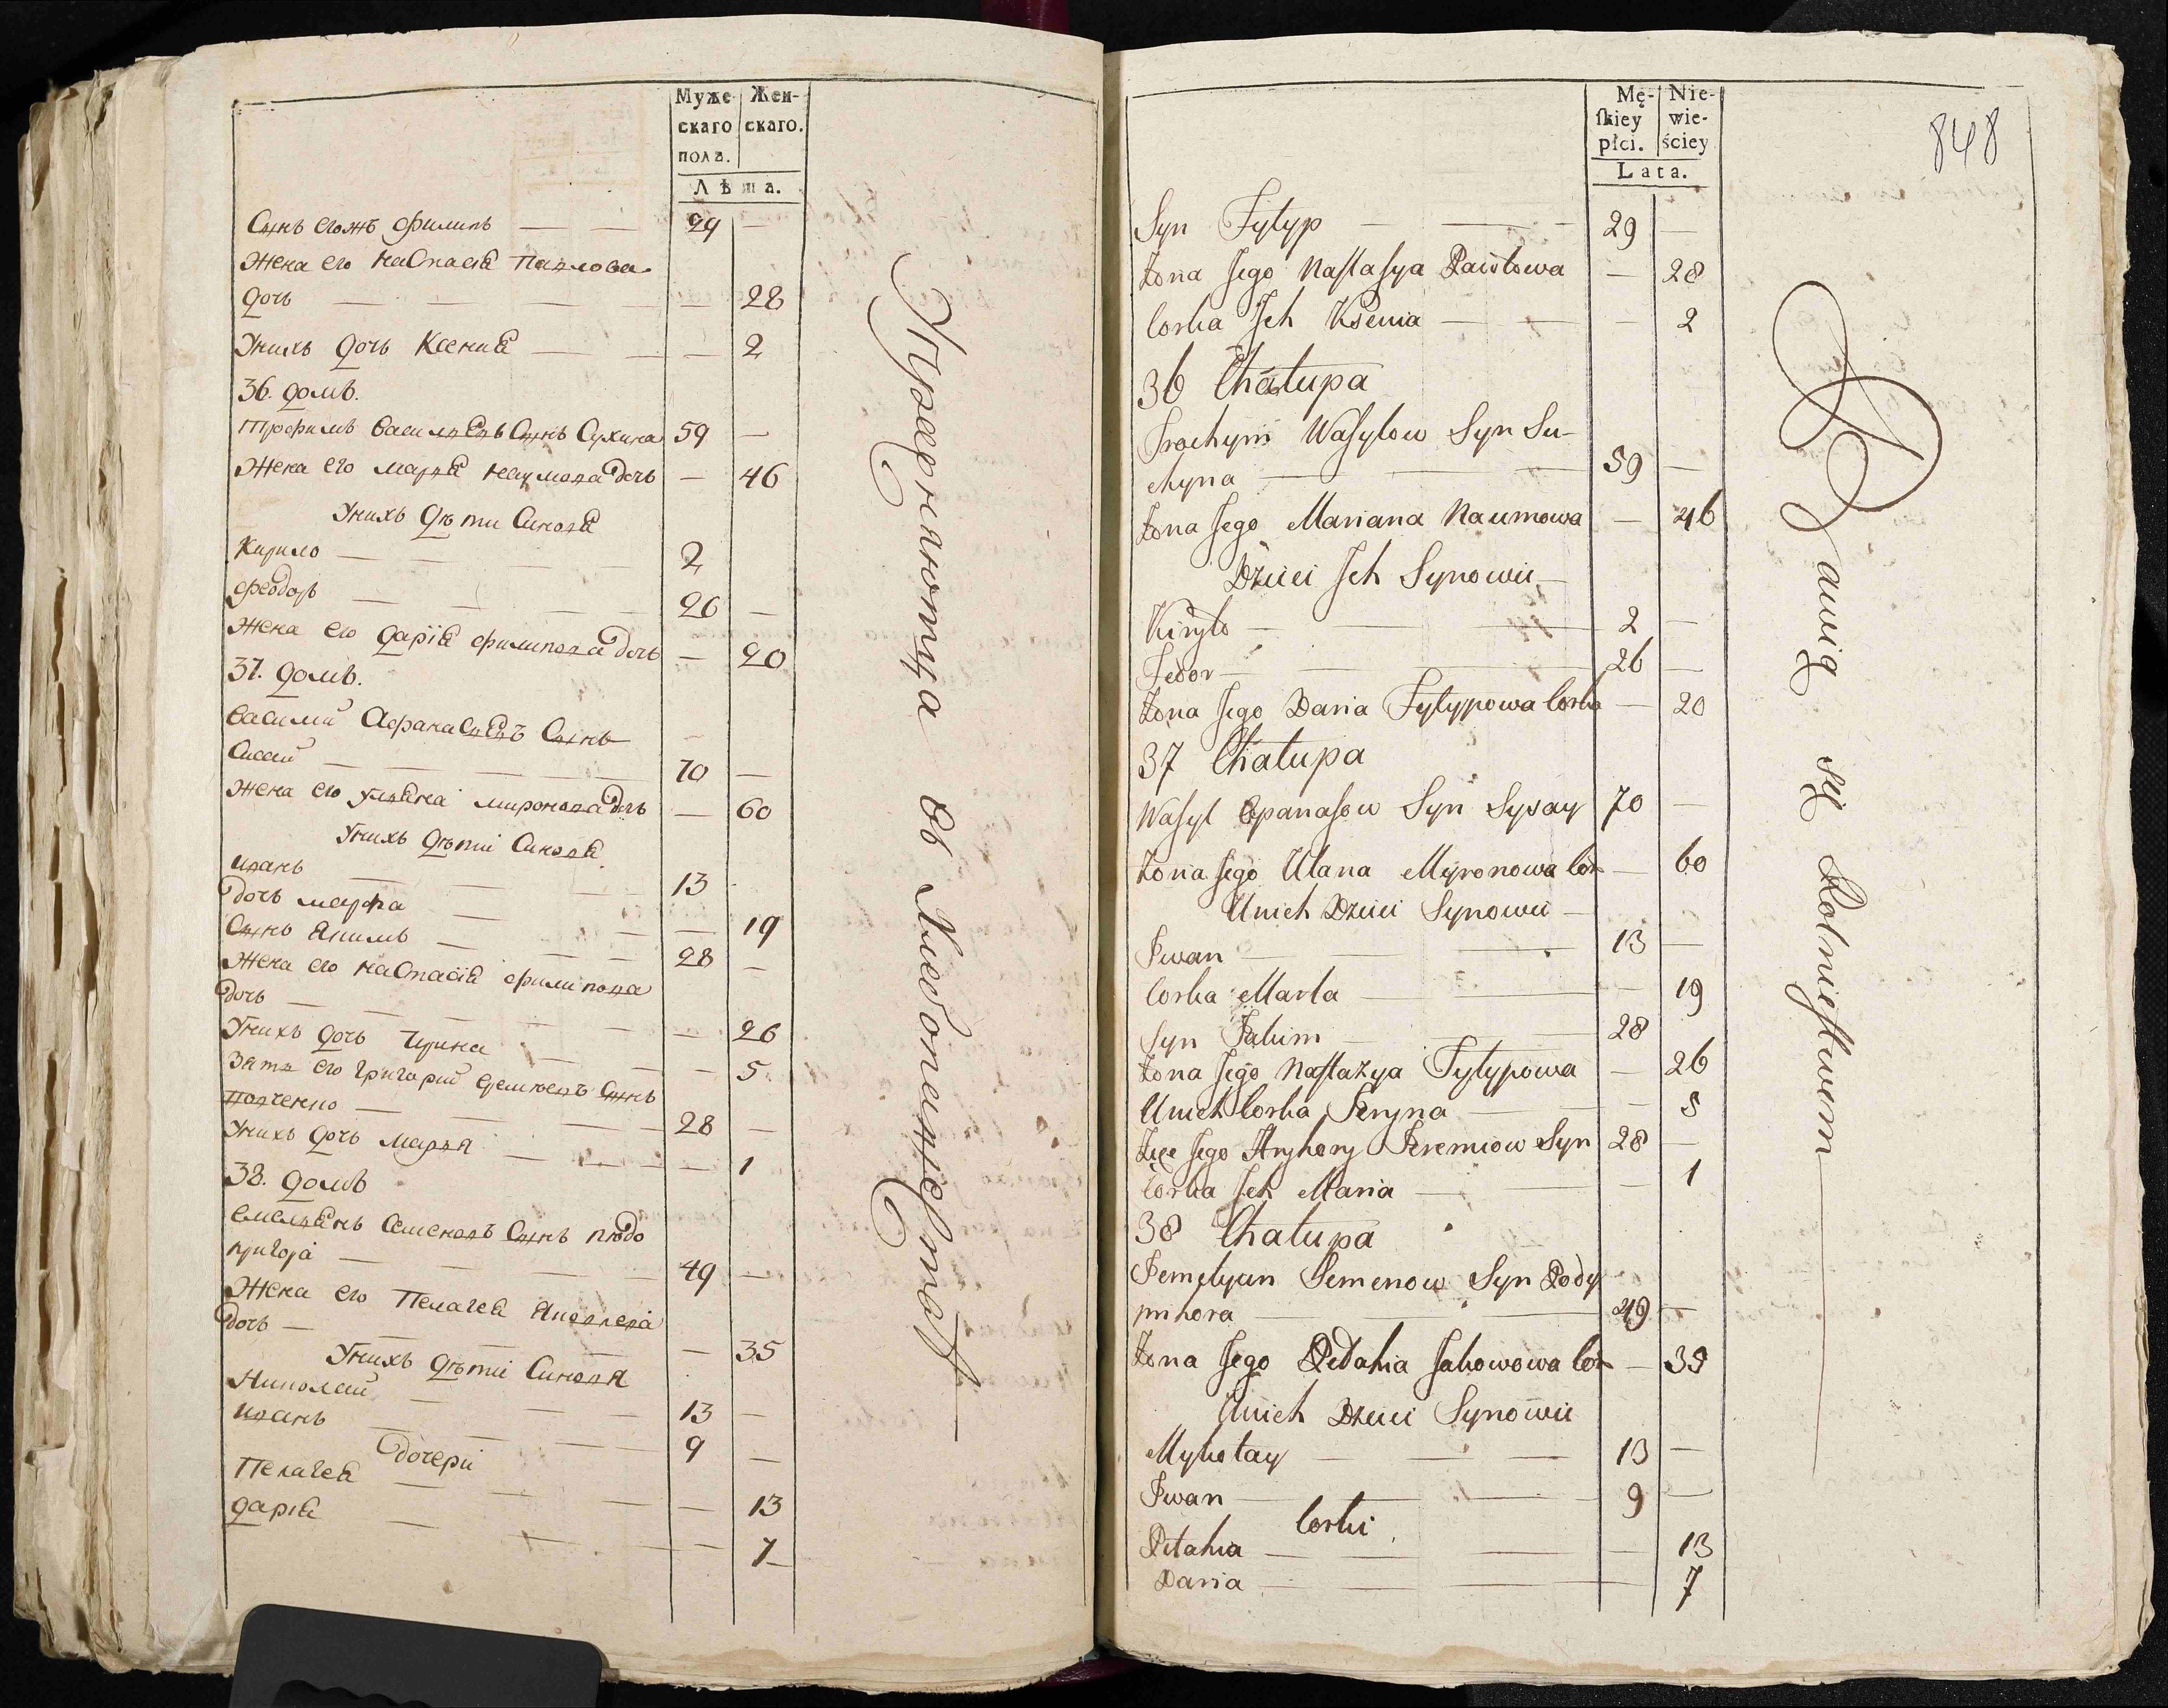 Муже-
скаго
пола.
Жен-
скаго.
Лѣта.
Сынъ егожъ Филипъ — — 29 —
Жена его Настасія Павлова
дочь — — — 28
Унихъ дочь Ксенія — — — 2
36. домъ.
Трофимъ Васильевъ Сынъ Сухина 59 —
Жена его Марья Наумова дочь — 46
Унихъ дѣти Синовя
Кирило — — — 2
Феодоръ — — — 26 —
Жена его Дарія Филипова дочь — 20
37. домъ.
Василий Афанасьевъ Сынъ
Сисей — — — 70 —
Жена его Ульяна Миронова дочь — 60
Унихъ дѣти Синовя
Иванъ — — — 13
дочь Марфа — — — 19
Сынъ Якимъ — — — 28 —
Жена его Настасія Филипова
дочь — — — 26
Унихъ дочь Ирина — — — 5
Зять его Григорий Еремѣевъ Сынъ
— — — 28 —
Унихъ дочь Марья — — — 1
38. домъ
Емельянъ Семеновъ Сынъ Подо
пригора — — — 49 —
Жена его Пелагея Яковлева
дочь — — — 35
Унихъ дѣти Синовя
Николай — — — 13 —
Иванъ — — — 9 —
дочери
Пелагея — — — 13
Дарія — — — 7
Упражняютца въ Хлебопашествѣ —
848
Mę-
skiey
płci.
Nie-
wie-
ściey
Lata.
Syn Fylyp — — 29 —
Zona Jego Nastasya Pawłowa — 28
Corka Jch Ksenia — — — 2
36 Chałupa
Trochym Wasylow Syn Su-
chyna — — — 59 —
Zona Jego Mariana Naumowa — 46
Dzieci Jch Synowie —
Kiryło — — — 2 —
Fedor — — — 26 —
Zona Jego Daria Fylypowa Corka — 20
37 Chałupa
Wasyl Opanasow Syn Sysay 70 —
Zona Jego Ulana Myronowa Cor — 60
Unich Dzieci Synowie —
Iwan — — 13 —
Corka Marta — — — 19
Syn Jakim — — 28
Zona Jego Nastazya Fylypowa — 26
Unich Corka Jeryna — — 5
Zięc Jego Hryhory Jeremiow Syn 28 —
Corka Jch Maria — — — 1
38 Chałupa
Jemelyan Semenow Syn Pody
prihora — — — 49 —
Zona Jego Pełahia Jakowowa Cor — 35
Unich Dzieci Synowie
Mykołay — — — 13 —
Iwan — — — 9 —
Corki
Pełahia — — — 13
Daria — — — 7
Bawią się Rolnictwem —